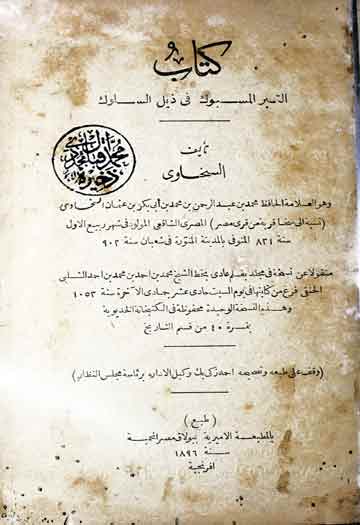 كتاب
التبر المسبوك فى ذيل السلوك
تأليف
السخاوى
وهو العلامة الحافظ محمد بن عبد الرحمن بن محمد بن أبى بكر بن عثمان السخاوى
(نسبة الى سخا قرية من قرى مصر) المصرى الشافعى المولود فى شهر ربيع الاول
سنة ٨٣١ المتوفى بالمدينة المنورة فى شعبان سنة ٩٠٢
منقولا عن نسخة فى مجلد بقلم عادى بخط الشيخ محمد بن احمد بن محمد بن احمد الشلبى
الحنفى فرغ من كتابتها فى يوم السبت حادى عشر جمادى الآخرة سنة ١٠٥٣
وهذه النسخة الوحيدة محفوظة فى الكتبخانة الخديوية
بنمرة ٤٥ من قسم التاريخ
(وقف على طبعه وتصحيحه احمد زكى بك وكيل الادارة برئاسة مجلس النظار)
(طبع)
بالمطبعة الاميرية ببولاق مصر المحمية
سنة ١٨٩٦
افرنجية